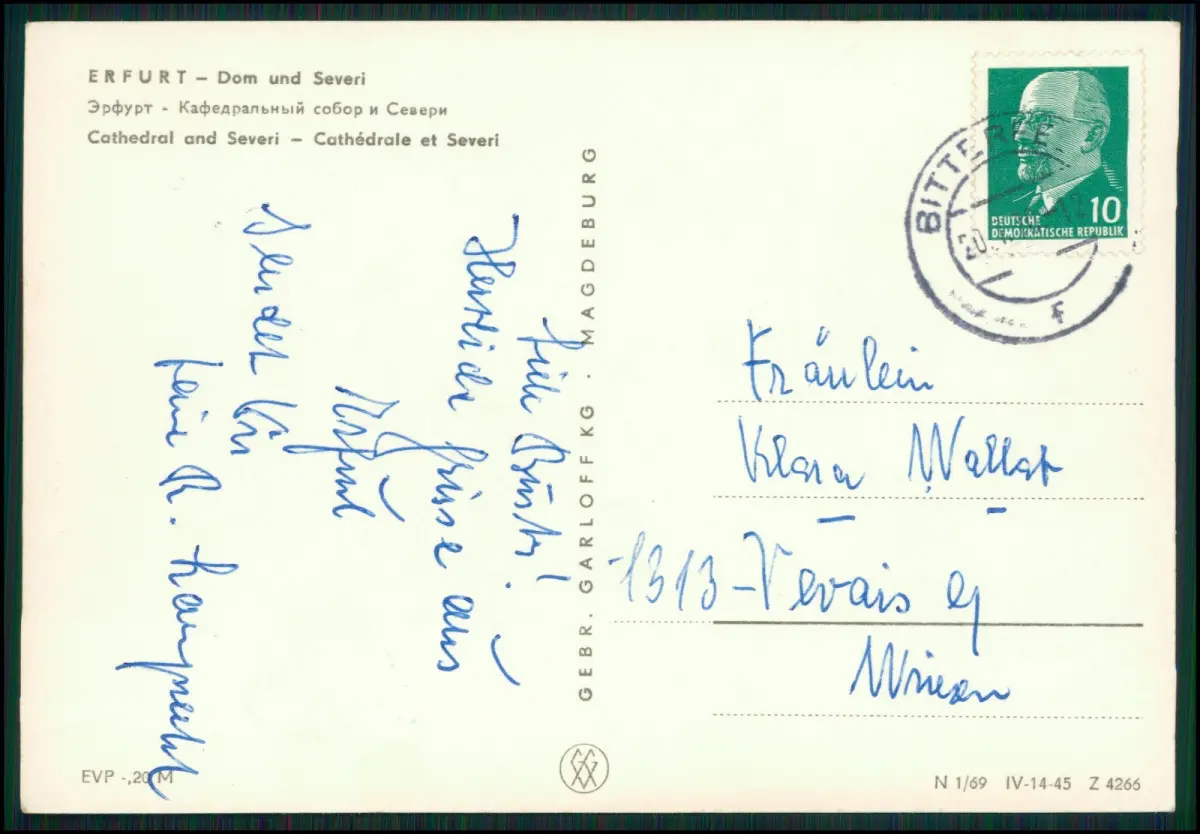 ERFURT – Dom und Severi
Эрфурт - Кафедральный собор и Севери
Cathedral and Severi – Cathédrale et Severi
Herzliche Grüsse aus
Erfurt
Sendet
R.
GEBR. GARLOFF KG · MAGDEBURG
BITTERFE
20.
f
10
DEUTSCHE
DEMOKRATISCHE REPUBLIK
Fräulein
Klara Wallat
1313 – Vevais
Wriezen
EVP -,20 M
N 1/69 IV-14-45 Z 4266